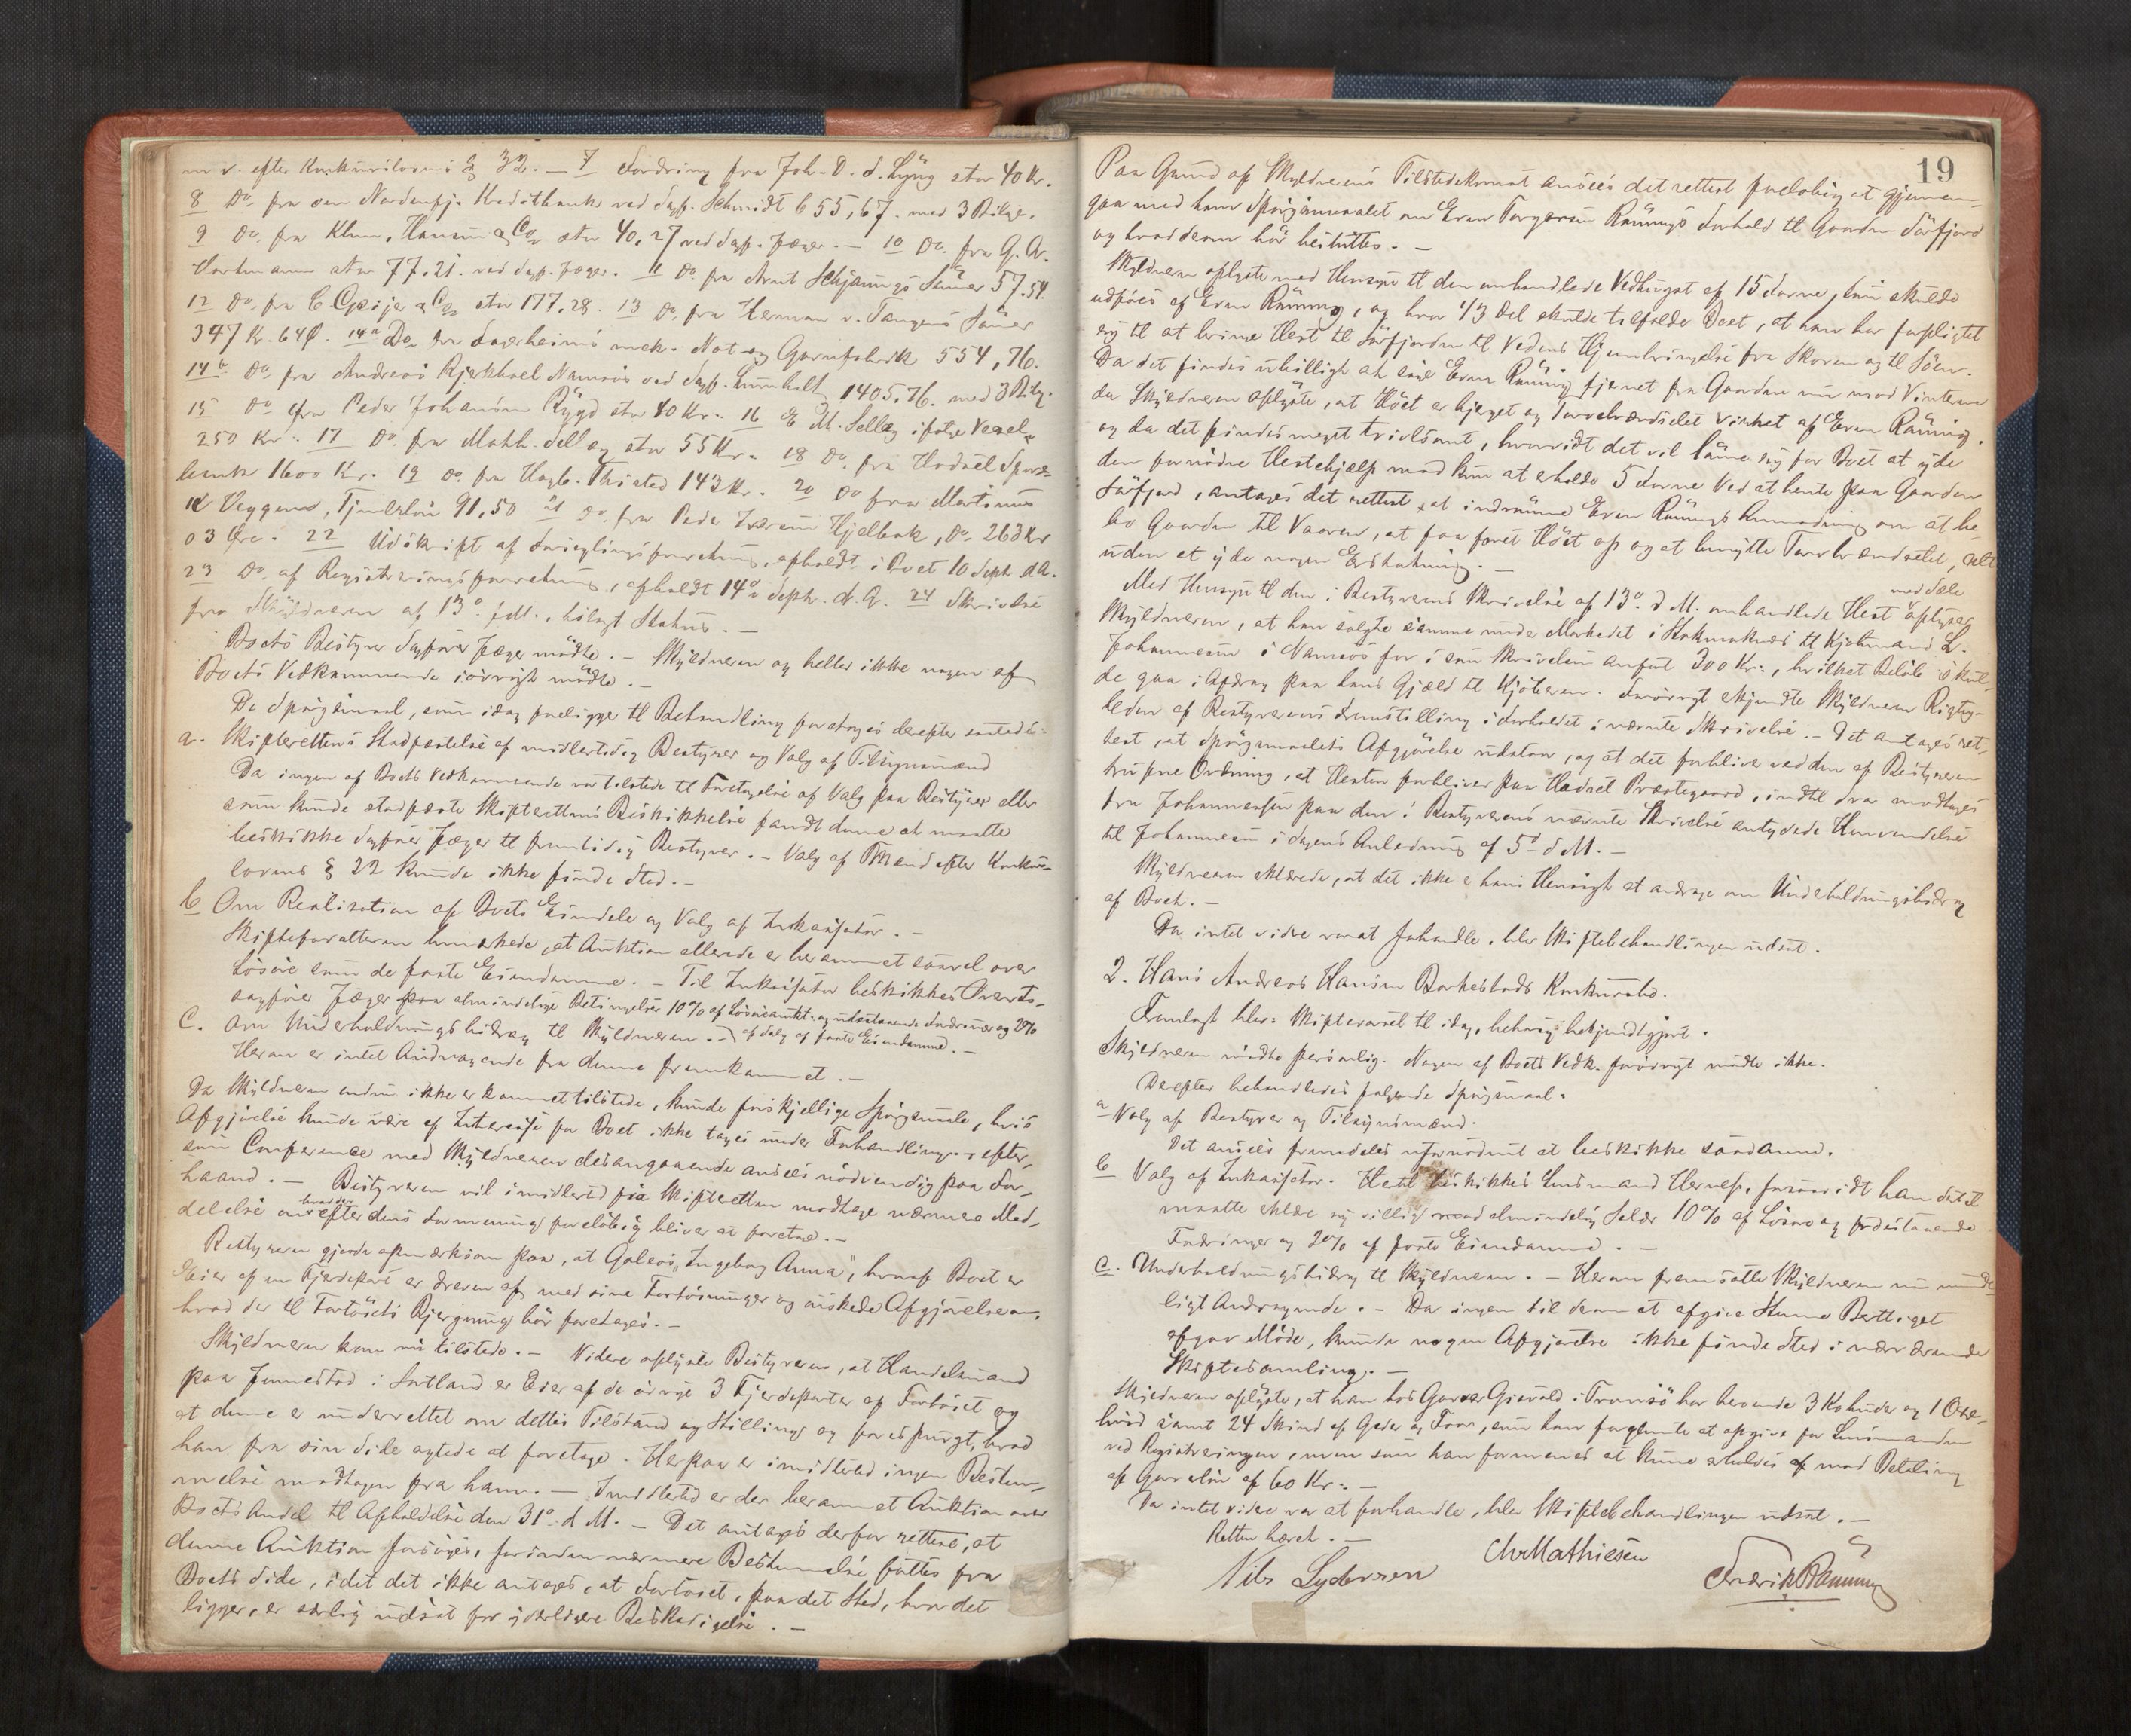 m v. efter Konkurslovens § 32. — 7 Fordring fra Joh. D. S. Lyng stor 40 Kr.
8 Do. fra den Nordenfj. Kreditbank ved Sagf. Schmidt 655,67. med 3 Bilge.
9 Do. fra Klem, Hansen & Co. stor 40,27 ved Sagf. Jæger. — 10 Do. fra G. A.
stor 77.21. ved Sagf. Jæger. 11 Do. fra Arnt Schjønings Sønner 57.54.
12 Do. fra C. & Co. stor 177,28. 13 Do. fra Herman v. Tangens Sønner
347 Kr. 64 Ø. 14a Do. fra Fagerheims mek. Not- og Garnfabrik 554,76.
14b Do. fra Andreas Namsos ved Sagf. 1405,76. med 3 Bilg.
15 Do. fra Peder Johansen stor 40 Kr. 16 E M. Sellæg ifølge Vexel
250 Kr. 17 Do. fra Math. Sellæg stor 55 Kr. 18 Do. fra Hadsel Spare-
bank 1600 Kr. 19 Do. fra Hagb. Thisted 143 Kr. 20 Do fra Martinus
Veggens, Tjenerløn 91,50 21 Do. fra Peder Iversen Hjelbak, Do. 263 Kr
03 Øre. 22 Udskrift af Forseglingsforretning, afholdt i Boet 10 Septr. d. A.
23 Do. af Registreringsforretning, afholdt 14de Septr. d. A. 24 Skrivelse
fra Skyldneren af 13de f. M., bilagt Status. —
Boets Bestyrer Sagfører Jæger mødte. — Skyldneren og heller ikke nogen af
Boets Vedkommende iøvrigt mødte. —
De Spørgsmaal, som idag foreligger til Behandling foretoges derefter saaledes:
a. Skifterettens Stadfæstelse af midlertidig Bestyrer og Valg af Tilsynsmænd
Da ingen af Boets Vedkommende var tilstede til Foretagelse af Valg paa Bestyrer eller
som kunde stadfæste Skifterettens Beskikkelse fandt denne at maatte
beskikke Sagfører Jæger til fremtidig Bestyrer. — Valg af Tilsmænd efter Konkurs-
lovens § 22 kunde ikke finde Sted. —
b Om Realisation af Boets Eiendele og Valg af Inkassator. —
Skifteforvalteren bemærkede, at Auktion allerede er berammet saavel over
Løsøre som de faste Eiendomme. — Til Inkassator beskikkes Overrets-
sagfører Jæger paa almindelige Betingelser 10% af Løsøreaukt. og udestaaende Fordringer og 2%
c. Om Underholdningsbidrag til Skyldneren. — af Salg af faste Eiendomme. —
Herom er intet Andragende fra denne fremkommet. —
Da Skyldneren endnu ikke er kommet tilstede, kunde forskjellige Spørgsmaale, hvis
Afgjørelse kunde være af Interesse for Boet ikke tages under Forhandling, efter-
som Conference med Skyldneren desangaaende ansees nødvendig paa For-
haand. — Bestyreren vil imidlertid fra Skifteretten modtage nærmere Med-
delelse om hvad der efter dens Formening foreløbig bliver at foretage. —
Bestyreren gjorde opmærksom paa, at Galeas "Ingeborg Anna", hvoraf Boet er
Eier af en Fjerdepart er dreven af med sine Fortøininger og ønskede Afgjørelse om,
hvad der til Fartøiets Bjergning bør foretages. —
Skyldneren kom nu tilstede. — Videre oplyste Bestyreren, at Handelsmand
paa Jennestad i Sortland er Eier af de øvrige 3 Fjerdeparter af Fartøiet og
at denne er underrettet om dettes Tilstand og Stilling og forespurgt, hvad
han fra sin Side agtede at foretage. Herpaa er imidlertid ingen Bestem-
melse modtagen fra ham. — Imidlertid er der berammet Auktion over
Boets Andel til Afholdelse den 31te d. M. — Det antages derfor rettest, at
denne Auktion forsøges, forinden nærmere Bestemmelse fattes fra
Boets Side, idet det ikke antages, at Fartøiet, paa det Sted, hvor det
ligger, er særlig udsat for yderligere Beskadigelse. —
19
Paa Grund af Skyldnerens Tilstedekomst ansees det rettest foreløbig at gjennem-
gaa med ham Spørgsmaalet om Even Torgersen Rønnings Forhold til Gaarden Sørfjord
og hvad derom bør besluttes. —
Skyldneren oplyste med Hensyn til den omhandlede Vedhugst af 15 Favne, som skulde
udføres af Even Rønning, og hvor 1/3 Del skulde tilfalde Boet, at han har forpligtet
sig til at bringe Hest til Sørfjorden til Vedens Hjembringelse fra Skoven og til Søen.
Da det findes ubilligt at Even Rønning fjernet fra Gaarden nu mod Vinteren
da Skyldneren oplyste, at Høet er bjerget og Torvebrændselet virket af Even Rønning,
og da det findes meget tvivlsomt, hvorvidt det vil lønne sig for Boet at yde
den fornødne Hestehjælp mod kun at erholde 5 Favne Ved at hente paa Gaarden
Sørfjord, antages det rettest, at indrømme Even Rønnings Anmodning om at be-
bo Gaarden til Vaaren, at faa foret Høet op og at benytte Torvbrændselet, alt
uden at yde nogen Erstatning. —
Med Hensyn til den i Bestyrerens Skrivelse af 13de d. M. omhandlede Hest med Sele oplyser
Skyldneren, at han solgte samme under Markedet i Stokmarknes til Kjøbmand L.
Johannesen i Namsos for i sin Skrivelse anført 300 Kr., hvilket Beløb skul-
de gaa i Afdrag paa hans Gjæld til Kjøberen. Forøvrigt skjønte Skyldneren Rigtig-
heden af Bestyrerens Fremstilling i Forholdet i nævnte Skrivelse. — Det antages ret-
test, at Spørgsmaalets Afgjørelse udstaar, og at det forbliver ved den af Bestyreren
trufne Ordning, at Hesten forbliver paa Hadsel Præstegaard, indtil Svar modtages
fra Johannesen paa den i Bestyrerens nævnte Skrivelse antydede Henvendelse
til Johannesen i Sagens Anledning af 5te d. M. —
Skyldneren erklærede, at det ikke er hans Hensigt at andrage om Underholdningsbidrag
af Boet. —
Da intet videre var at forhandle, blev Skiftebehandlingen udsat.
2. Hans Andreas Hansen Barkestads Konkursbo.
Fremlagt blev: Skiftevarsel til idag, behørig bekjendtgjort.
Skyldneren mødte personlig. Nogen af Boets Vedk. forøvrigt mødte ikke.
Derefter behandledes følgende Spørgsmaal:
a Valg af Bestyrer og Tilsynsmænd.
Det ansees fremdeles ufornødent at beskikke saadanne.
b Valg af Inkassator. Hertil beskikkes Lensmand Herness, forsaavidt han dertil
maatte erklære sig villig mod almindelig Salær 10% af Løsøre og udestaaende
Fordringer og 2% af faste Eiendomme. —
c. Underholdningsbidrag til Skyldneren. — Herom fremsatte Skyldneren nu mundt-
ligt Andragende. — Da ingen til derom at afgive Stemme Berettiget
afgav Møde, kunde nogen Afgjørelse ikke finde Sted i nærværende
Skiftesamling. —
Skyldneren oplyste, at han hos Garver Giævold i Tromsø har beroende 3 Kohuder og 1 Oxe-
hud samt 24 Skind af Geder og Faar, som han forglemte at opgive for Lensmanden
ved Registreringen, men som han formenes at kunne erholdes af mod Betaling
af Garveløn af 60 Kr. —
Da intet videre var at forhandle, blev Skiftebehandlingen udsat. —
Retten hævet. —
Chr Mathiesen
Nils Sydersen
Fredrik Rønning